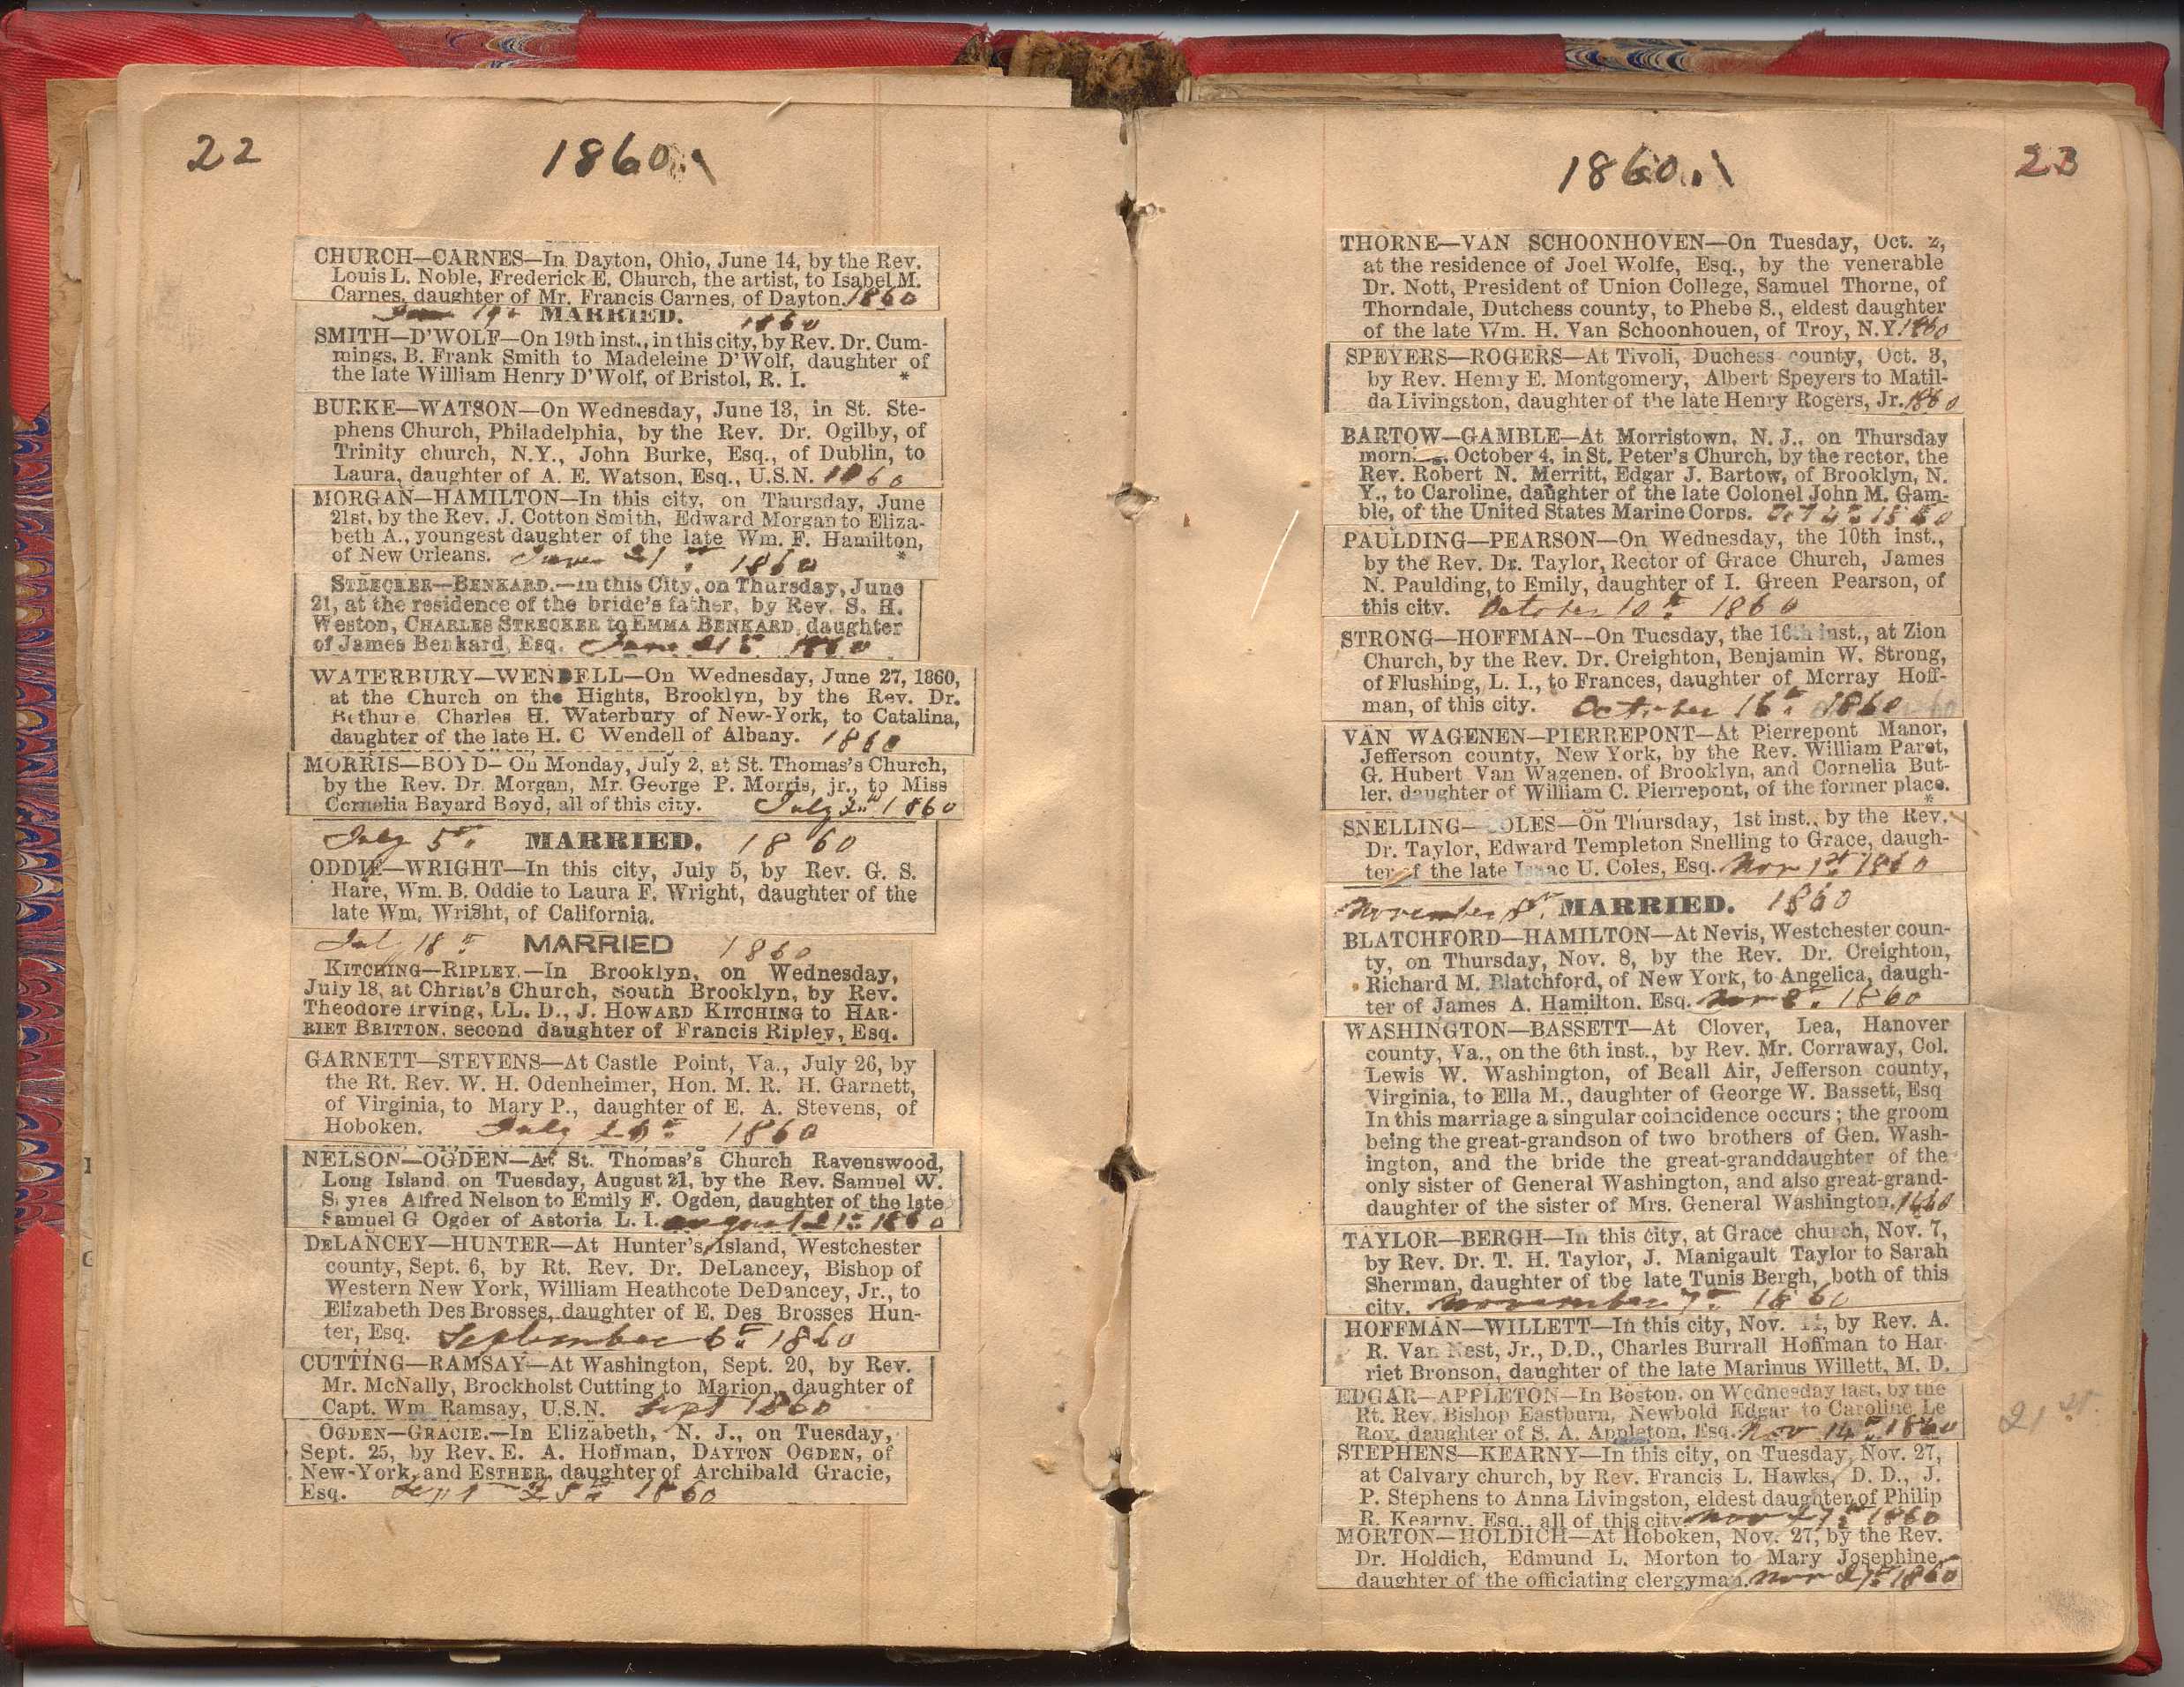 22
1860.
CHURCH—CARNES—In Dayton, Ohio, June 14, by the Rev.
Louis L. Noble, Frederick E. Church, the artist, to Isabel M.
Carnes, daughter of Mr. Francis Carnes, of Dayton. 1860
MARRIED. 1860
SMITH—D'WOLF—On 19th inst., in this city, by Rev. Dr. Cum-
mings, B. Frank Smith to Madeleine D'Wolf, daughter of
the late William Henry D'Wolf, of Bristol, R. I. *
BURKE—WATSON—On Wednesday, June 13, in St. Ste-
phens Church, Philadelphia, by the Rev. Dr. Ogilby, of
Trinity church, N.Y., John Burke, Esq., of Dublin, to
Laura, daughter of A. E. Watson, Esq., U.S.N. 1860
MORGAN—HAMILTON—In this city, on Thursday, June
21st, by the Rev. J. Cotton Smith, Edward Morgan to Eliza-
beth A., youngest daughter of the late Wm. F. Hamilton,
of New Orleans. June 21st. 1860 *
STRECKER—BENKARD.—In this City, on Thursday, June
21, at the residence of the bride's father, by Rev. S. H.
Weston, CHARLES STRECKER to EMMA BENKARD, daughter
of James Benkard, Esq. June 21st 1860
WATERBURY—WENDELL—On Wednesday, June 27, 1860,
at the Church on the Hights, Brooklyn, by the Rev. Dr.
Bethune, Charles H. Waterbury of New-York, to Catalina,
daughter of the late H. C Wendell of Albany. 1860
MORRIS—BOYD—On Monday, July 2, at St. Thomas's Church,
by the Rev. Dr. Morgan, Mr. George P. Morris, jr., to Miss
Cornelia Bayard Boyd, all of this city. July 2nd. 1860
July 5th. MARRIED. 1860
ODDIE—WRIGHT—In this city, July 5, by Rev. G. S.
Hare, Wm. B. Oddie to Laura F. Wright, daughter of the
late Wm. Wright, of California.
July 18th MARRIED 1860
KITCHING—RIPLEY.—In Brooklyn, on Wednesday,
July 18, at Christ's Church, South Brooklyn, by Rev.
Theodore Irving, LL. D., J. HOWARD KITCHING to HAR-
RIET BRITTON, second daughter of Francis Ripley, Esq.
GARNETT—STEVENS—At Castle Point, Va., July 26, by
the Rt. Rev. W. H. Odenheimer, Hon. M. R. H. Garnett,
of Virginia, to Mary P., daughter of E. A. Stevens, of
Hoboken. July 26th 1860
NELSON—OGDEN—At St. Thomas's Church Ravenswood,
Long Island on Tuesday, August 21, by the Rev. Samuel W.
Sayres Alfred Nelson to Emily F. Ogden, daughter of the late
Samuel G Ogden of Astoria L. I. August 21st 1860
DELANCEY—HUNTER—At Hunter's Island, Westchester
county, Sept. 6, by Rt. Rev. Dr. DeLancey, Bishop of
Western New York, William Heathcote DeDancey, Jr., to
Elizabeth Des Brosses, daughter of E. Des Brosses Hun-
ter, Esq. September 6th 1860
CUTTING—RAMSAY—At Washington, Sept. 20, by Rev.
Mr. McNally, Brockholst Cutting to Marion, daughter of
Capt. Wm. Ramsay, U.S.N. Sept 1860
OGDEN—GRACIE.—In Elizabeth, N. J., on Tuesday,
Sept. 25, by Rev. E. A. Hoffman, DAYTON OGDEN, of
New-York, and ESTHER, daughter of Archibald Gracie,
Esq. Sept 25th 1860
1860.
23
THORNE—VAN SCHOONHOVEN—On Tuesday, Oct. 2,
at the residence of Joel Wolfe, Esq., by the venerable
Dr. Nott, President of Union College, Samuel Thorne, of
Thorndale, Dutchess county, to Phebe S., eldest daughter
of the late Wm. H. Van Schoonhouen, of Troy, N.Y. 1860
SPEYERS—ROGERS—At Tivoli, Duchess county, Oct. 3,
by Rev. Henry E. Montgomery, Albert Speyers to Matil-
da Livingston, daughter of the late Henry Rogers, Jr. 1860
BARTOW—GAMBLE—At Morristown, N. J., on Thursday
October 4, in St. Peter's Church, by the rector, the
Rev. Robert N. Merritt, Edgar J. Bartow, of Brooklyn, N.
Y., to Caroline, daughter of the late Colonel John M. Gam-
ble, of the United States Marine Corps. Oct 4th 1860
PAULDING—PEARSON—On Wednesday, the 10th inst.,
by the Rev. Dr. Taylor, Rector of Grace Church, James
N. Paulding, to Emily, daughter of I. Green Pearson, of
this city. October 10th 1860
STRONG—HOFFMAN--On Tuesday, the 16th inst., at Zion
Church, by the Rev. Dr. Creighton, Benjamin W. Strong,
of Flushing, L. I., to Frances, daughter of Merray Hoff-
man, of this city. October 16th 1860
VAN WAGENEN—PIERREPONT—At Pierrepont Manor,
Jefferson county, New York, by the Rev. William Paret,
G. Hubert Van Wagenen, of Brooklyn, and Cornelia But-
ler, daughter of William C. Pierrepont, of the former place. *
SNELLING—COLES—On Thursday, 1st inst., by the Rev.
Dr. Taylor, Edward Templeton Snelling to Grace, daugh-
ter of the late Isaac U. Coles, Esq. Nov 1st 1860
November 8th. MARRIED. 1860
BLATCHFORD—HAMILTON—At Nevis, Westchester coun-
ty, on Thursday, Nov. 8, by the Rev. Dr. Creighton,
Richard M. Blatchford, of New York, to Angelica, daugh-
ter of James A. Hamilton, Esq. Nov 8th. 1860
WASHINGTON—BASSETT—At Clover, Lea, Hanover
county, Va., on the 6th inst., by Rev. Mr. Corraway, Col.
Lewis W. Washington, of Beall Air, Jefferson county,
Virginia, to Ella M., daughter of George W. Bassett, Esq
In this marriage a singular coincidence occurs; the groom
being the great-grandson of two brothers of Gen. Wash-
ington, and the bride the great-granddaughter of the
only sister of General Washington, and also great-grand-
daughter of the sister of Mrs. General Washington. 1860
TAYLOR—BERGH—In this city, at Grace church, Nov. 7,
by Rev. Dr. T. H. Taylor, J. Manigault Taylor to Sarah
Sherman, daughter of the late Tunis Bergh, both of this
city. November 7th 1860
HOFFMAN—WILLETT—In this city, Nov. by Rev. A.
R. Van Nest, Jr., D.D., Charles Burrall Hoffman to Har-
riet Bronson, daughter of the late Marinus Willett, M. D.
EDGAR—APPLETON—In Boston, on Wednesday last, by the
Rt. Rev. Bishop Eastburn, Newbold Edgar to Caroline Le
Roy, daughter of S. A. Appleton, Esq. Nov 14th 1860
21st.
STEPHENS—KEARNY—In this city, on Tuesday, Nov. 27,
at Calvary church, by Rev. Francis L. Hawks, D. D., J.
P. Stephens to Anna Livingston, eldest daughter of Philip
R. Kearny, Esq., all of this city. Nov 27th 1860
MORTON—HOLDICH—At Hoboken, Nov. 27, by the Rev.
Dr. Holdich, Edmund L. Morton to Mary Josephine,
daughter of the officiating clergyman. Nov 27th 1860